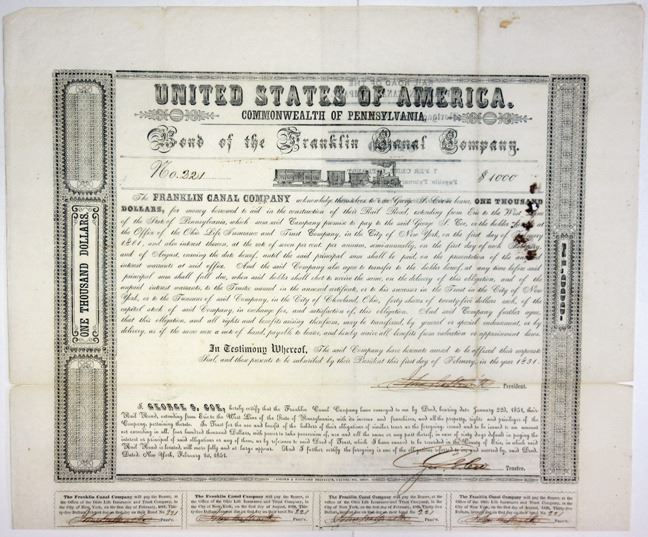 UNITED STATES OF AMERICA.
COMMONWEALTH OF PENNSYLVANIA.
Bond of the Franklin Canal Company.
No. 221 $1000
The FRANKLIN CANAL COMPANY acknowledge themselves to owe George S. Coe or bearer, ONE THOUSAND
DOLLARS, for money borrowed to aid in the construction of their Rail Road, extending from Erie to the West line
of the State of Pennsylvania, which sum said Company promise to pay to the said George S. Coe, or the holder hereof, at
the Office of the Ohio Life Insurance and Trust Company, in the City of New York, on the first day of
1861, and also interest thereon, at the rate of seven per cent. per annum, semi-annually, on the first day of each February
and of August, ensuing the date hereof, until the said principal sum shall be paid, on the presentation of the annexed
interest warrants at said office. And the said Company also agree to transfer to the holder hereof, at any time before said
principal sum shall fall due, when said holder shall elect to receive the same, on the delivery of this obligation, and of the
unpaid interest warrants, to the Trustee named in the annexed certificate, or to his successor in the Trust in the City of New
York, or to the Treasurer of said Company, in the City of Cleveland, Ohio, forty shares of twenty-five dollars each, of the
capital stock of said Company, in exchange for, and satisfaction of, this obligation. And said Company further agree,
that this obligation, and all rights and benefits arising therefrom, may be transferred by general or special endorsement, or by
delivery, as if the same were a note of hand, payable to bearer, and hereby waive all benefit from valuation or appraisement laws.
In Testimony Whereof, The said Company have hereunto caused to be affixed their corporate
Seal, and these presents to be subscribed by their President this first day of February, in the year 1851.
President.
I, GEORGE S. COE, hereby certify that the Franklin Canal Company have conveyed to me by Deed, bearing date January 22d, 1851, their
Rail Road, extending from Erie to the West Line of the State of Pennsylvania, with its income and franchises, and all the property, rights and privileges of the
Company, pertaining thereto. In Trust for the use and benefit of the holders of their obligations of similar tenor as the foregoing; issued and to be issued to an amount
not exceeding in all, four hundred thousand Dollars, with powers to take possession of, use and sell the same or any part thereof, in case of sixty days default in paying the
interest or principal of said obligations or any of them, as by reference to said Deed of Trust, which I have caused to be recorded in the County of Erie, in which said
Rail Road is located, will more fully and at large appear. And I further certify the foregoing is one of the obligations referred to, and secured by, said Deed.
Dated, New York, February 1st, 1851.
Trustee.
ONE THOUSAND DOLLARS.
The Franklin Canal Company will pay the Bearer, at
the Office of the Ohio Life Insurance and Trust Company, in
the City of New York, on the first day of February,
Dollars, interest due on that day on their Bond No. 221
Pres't.
The Franklin Canal Company will pay the Bearer, at
the Office of the Ohio Life Insurance and Trust Company, in
the City of New York, on the first day of August,
Dollars, interest due on that day on their Bond No. 221
Pres't.
The Franklin Canal Company will pay the Bearer, at
the Office of the Ohio Life Insurance and Trust Company, in
the City of New York, on the first day of
Dollars, interest due on that day on their Bond No. 221
Pres't.
The Franklin Canal Company will pay the Bearer, at
the Office of the Ohio Life Insurance and Trust Company, in
the City of New York, on the first day of August,
Dollars, interest due on that day on their Bond No. 221
Pres't.